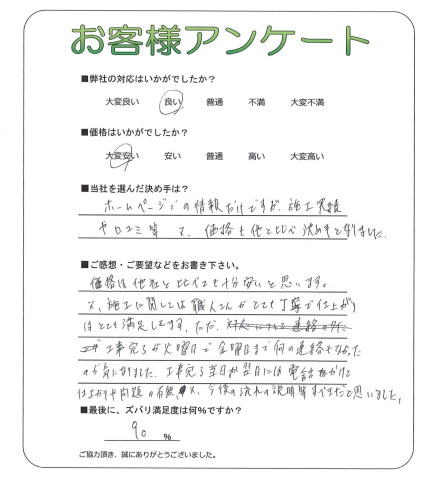 お客様アンケート
■弊社の対応はいかがでしたか?
大変良い 良い 普通 不満 大変不満
■価格はいかがでしたか?
大変安い 安い 普通 高い 大変高い
■当社を選んだ決め手は?
ホームページでの情報だけですが、施工実績
や口コミ等 で、価格も他と比べ決め手となりました。
■ご感想・ご要望などをお書き下さい。
価格は他社と比べても十分安いと思います。
又、施工に関しては職人さんがとても丁寧で仕上がり
はとても満足してます。ただ、
工事完了が火曜日で金曜日まで何の連絡もなかった
のが気になりました。工事完了当日か翌日には電話をかけて
仕上がりや問題の有無、又、今後の流れの説明等すべきだと思いました。
■最後に、ズバリ満足度は何%ですか?
90 %
ご協力頂き、誠にありがとうございました。